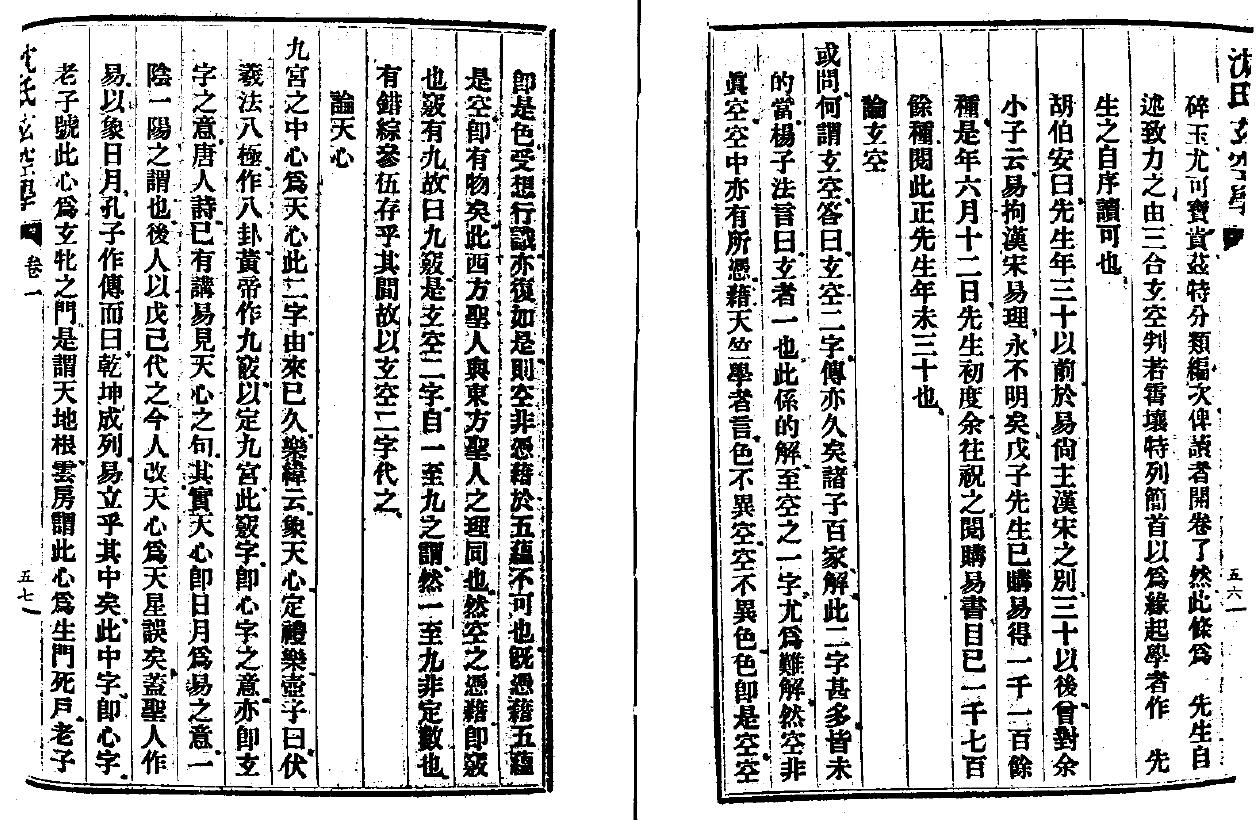 沈氏玄空學
五六
碎玉尤可寶貴茲特分類編次俾讀者開卷了然此條爲　先生自
述致力之由三合玄空判若霄壤特列簡首以爲緣起學者作　先
生之自序讀可也
胡伯安曰先生年三十以前於易尙主漢宋之別三十以後曾對余
小子云易拘漢宋易理永不明矣戊子先生已購易得一千一百餘
種是年六月十二日先生初度余往祝之閱購易書目已一千七百
餘種閱此正先生年未三十也
論玄空
或問何謂玄空答曰玄空二字傳亦久矣諸子百家解此二字甚多皆未
的當楊子法言曰玄者一也此係的解至空之一字尤爲難解然空非
眞空空中亦有所憑藉天竺學者言色不異空空不異色色卽是空空
卽是色受想行識亦復如是則空非憑藉於五蘊不可也旣憑藉五蘊
是空卽有物矣此西方聖人與東方聖人之理同也然空之憑藉卽竅
也竅有九故曰九竅是玄空二字自一至九之謂然一至九非定數也
有錯綜參伍存乎其間故以玄空二字代之
論天心
九宮之中心爲天心此二字由來已久樂緯云象天心定禮樂壺子曰伏
羲法八極作八卦黃帝作九竅以定九宮此竅字卽心字之意亦卽玄
字之意唐人詩已有講易見天心之句其實天心卽日月爲易之意一
陰一陽之謂也後人以戊己代之今人改天心爲天星誤矣蓋聖人作
易以象日月孔子作傳而曰乾坤成列易立乎其中矣此中字卽心字
老子號此心爲玄牝之門是謂天地根雲房謂此心爲生門死戶老子
沈氏玄空學
卷一
五七